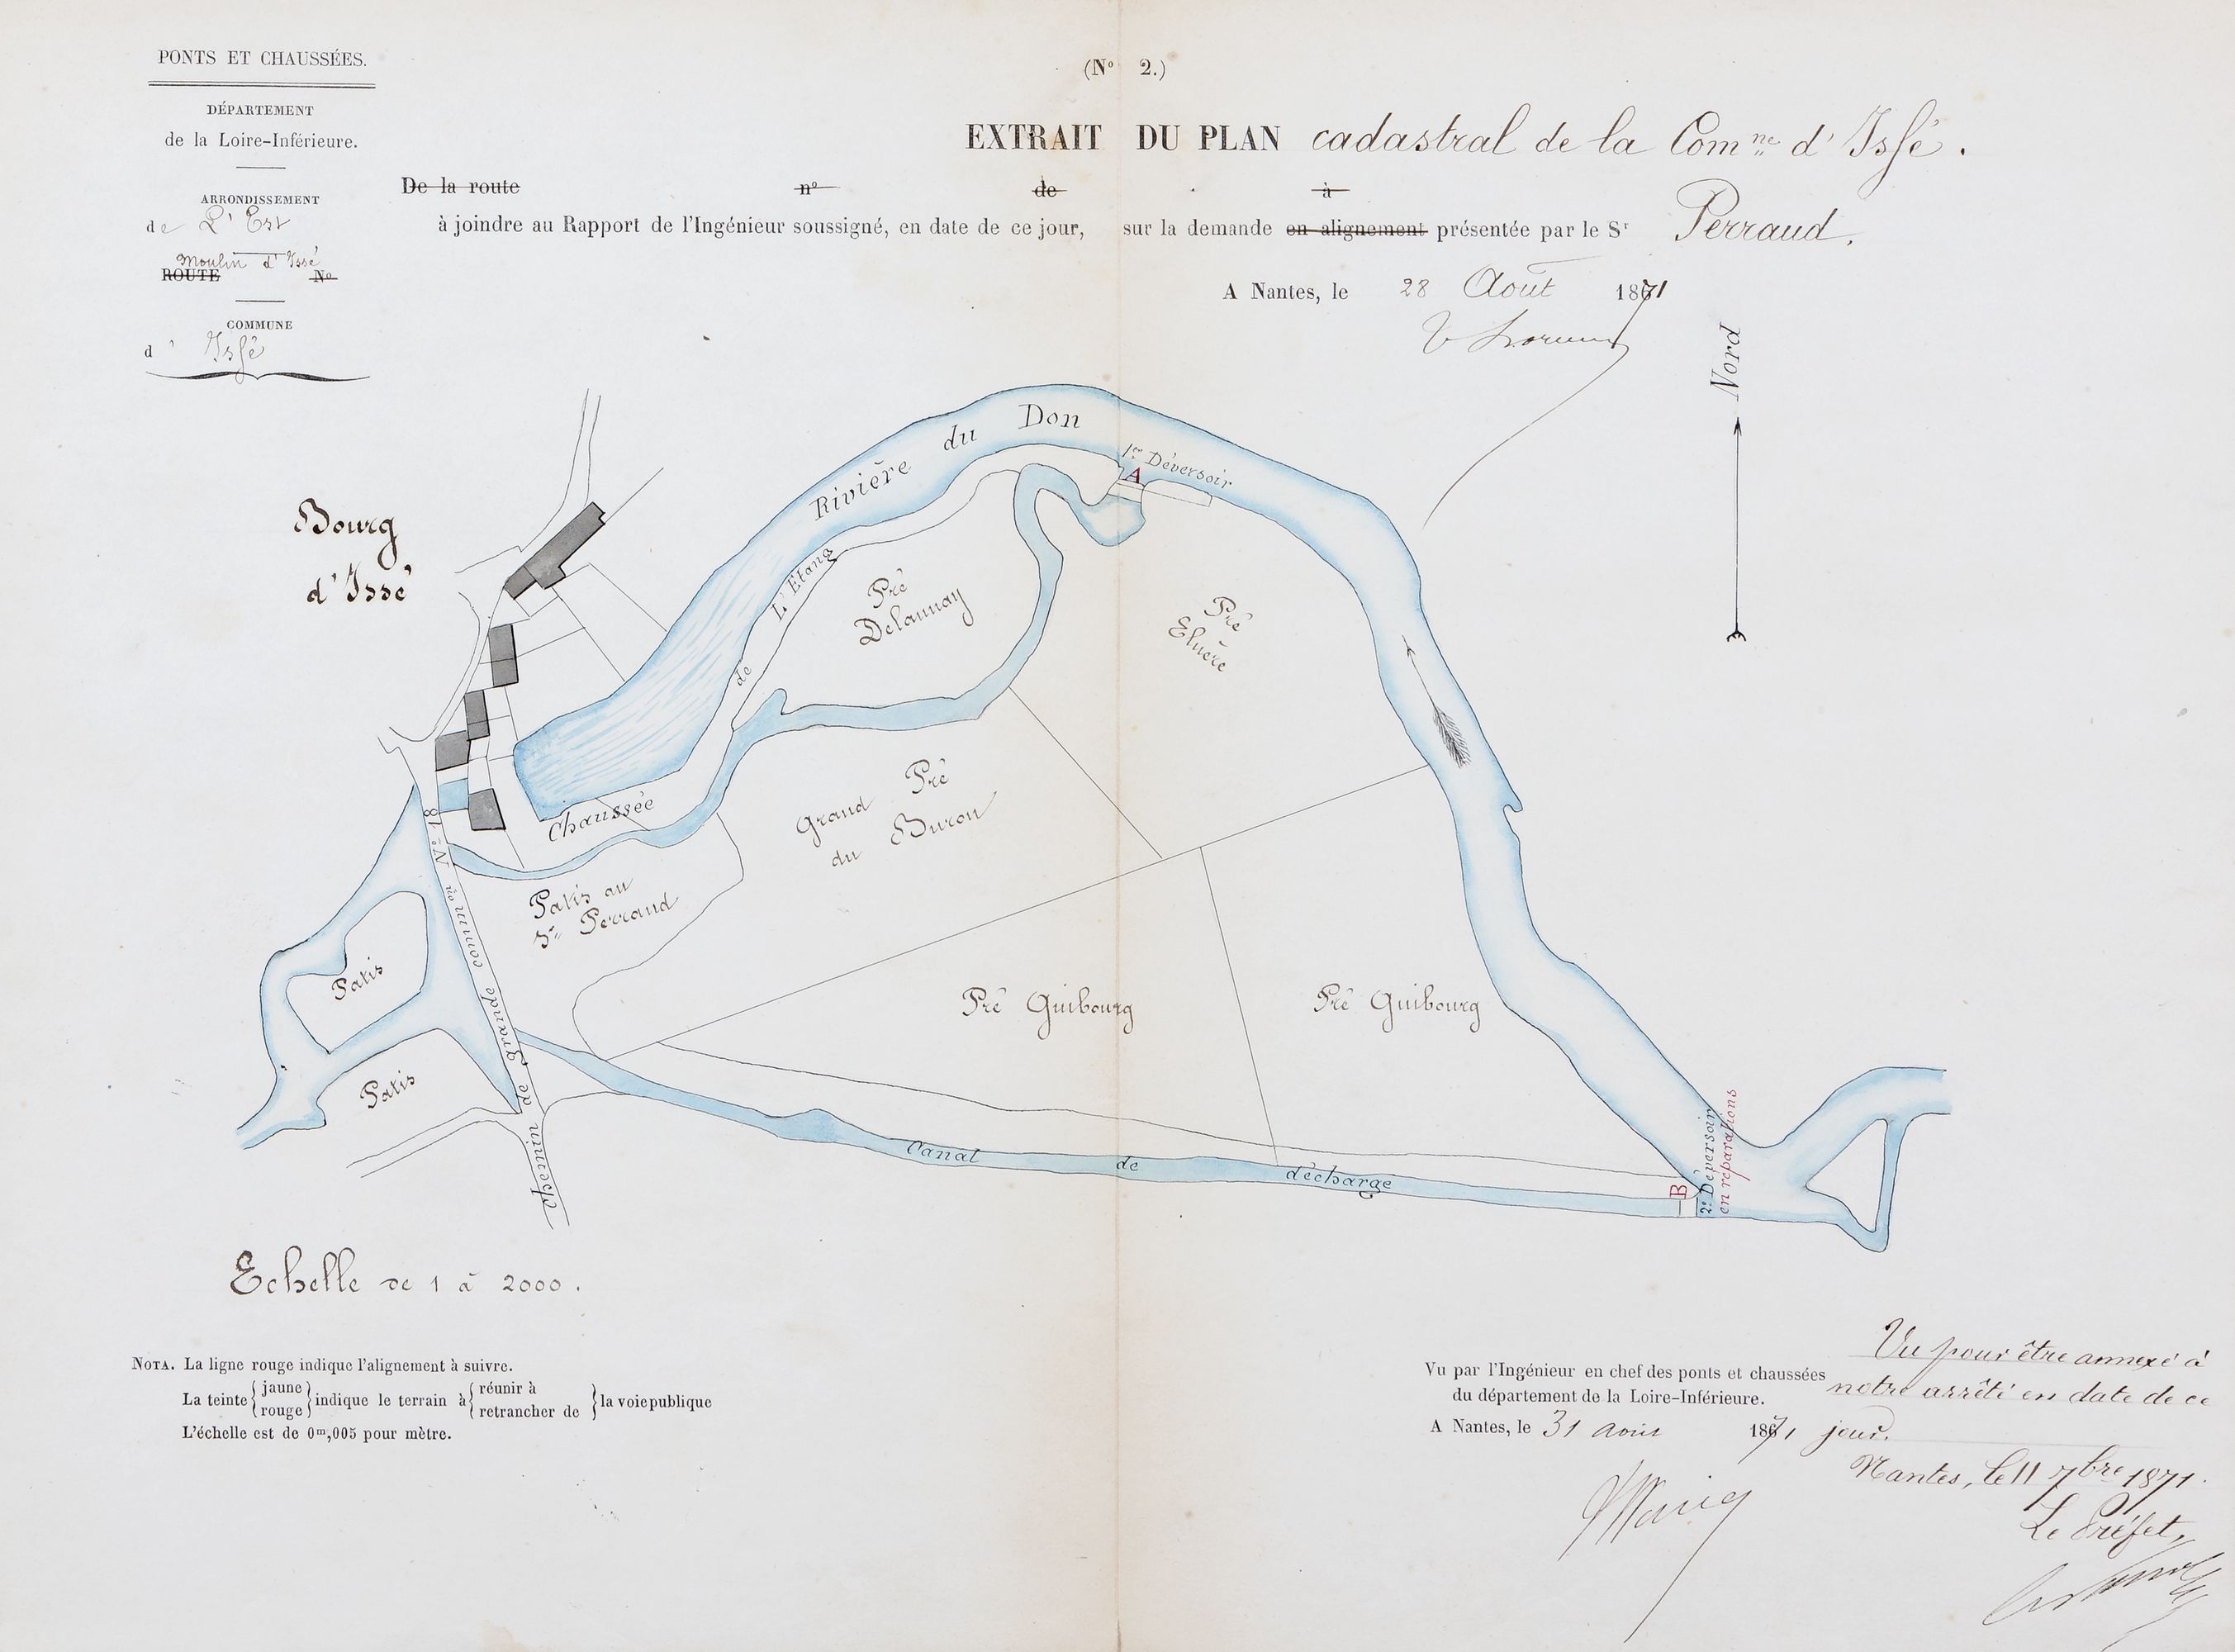 PONTS ET CHAUSSÉES.
DÉPARTEMENT
de la Loire-Inférieure.
ARRONDISSEMENT
de L'Est
Moulin d'Issé
ROUTE No
COMMUNE
d' Issé
(No 2.)
EXTRAIT DU PLAN cadastral de la Comne d'Issé.
De la route no de à
à joindre au Rapport de l'Ingénieur soussigné, en date de ce jour, sur la demande en alignement présentée par le Sr Perraud.
A Nantes, le 28 Août 1871
Nord
Bourg
d'Issé
Rivière du Don
1er Déversoir
A
Chaussée de L'Etang
Pré
Delaunay
Pré
Grand Pré
du Buron
Patis au
Sr Perraud
Patis
Patis
Pré Guibourg
Pré Guibourg
chemin de grande common No 18
Canal de décharge
B
2e Déversoir
en réparations
Echelle de 1 à 2000.
NOTA. La ligne rouge indique l'alignement à suivre.
La teinte { jaune rouge } indique le terrain à { réunir à retrancher de } la voie publique
L'échelle est de 0m,005 pour mètre.
Vu par l'Ingénieur en chef des ponts et chaussées
du département de la Loire-Inférieure.
A Nantes, le 31 août 1871
Vu pour être annexé à
notre arrêté en date de ce
jour.
Nantes, le 11 7bre 1871.
Le Préfet,